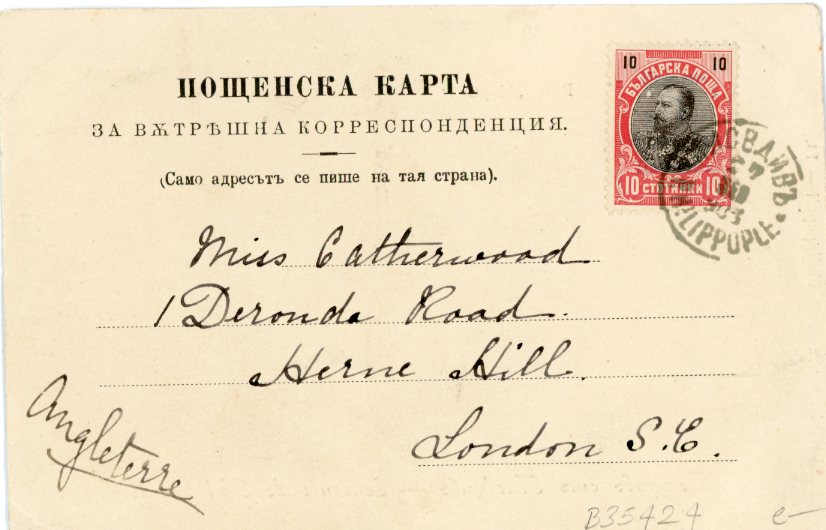 ПОЩЕНСКА КАРТА
ЗА ВѪТРѢШНА КОРРЕСПОНДЕНЦИЯ.
(Само адресътъ се пише на тая страна).
10 10
БЪЛГАРСКА ПОЩА
10 СТОТИНКИ 10
Miss Catherwood
1 Deronda Road.
Herne Hill.
London S.E.
Angleterre
B35424 e—